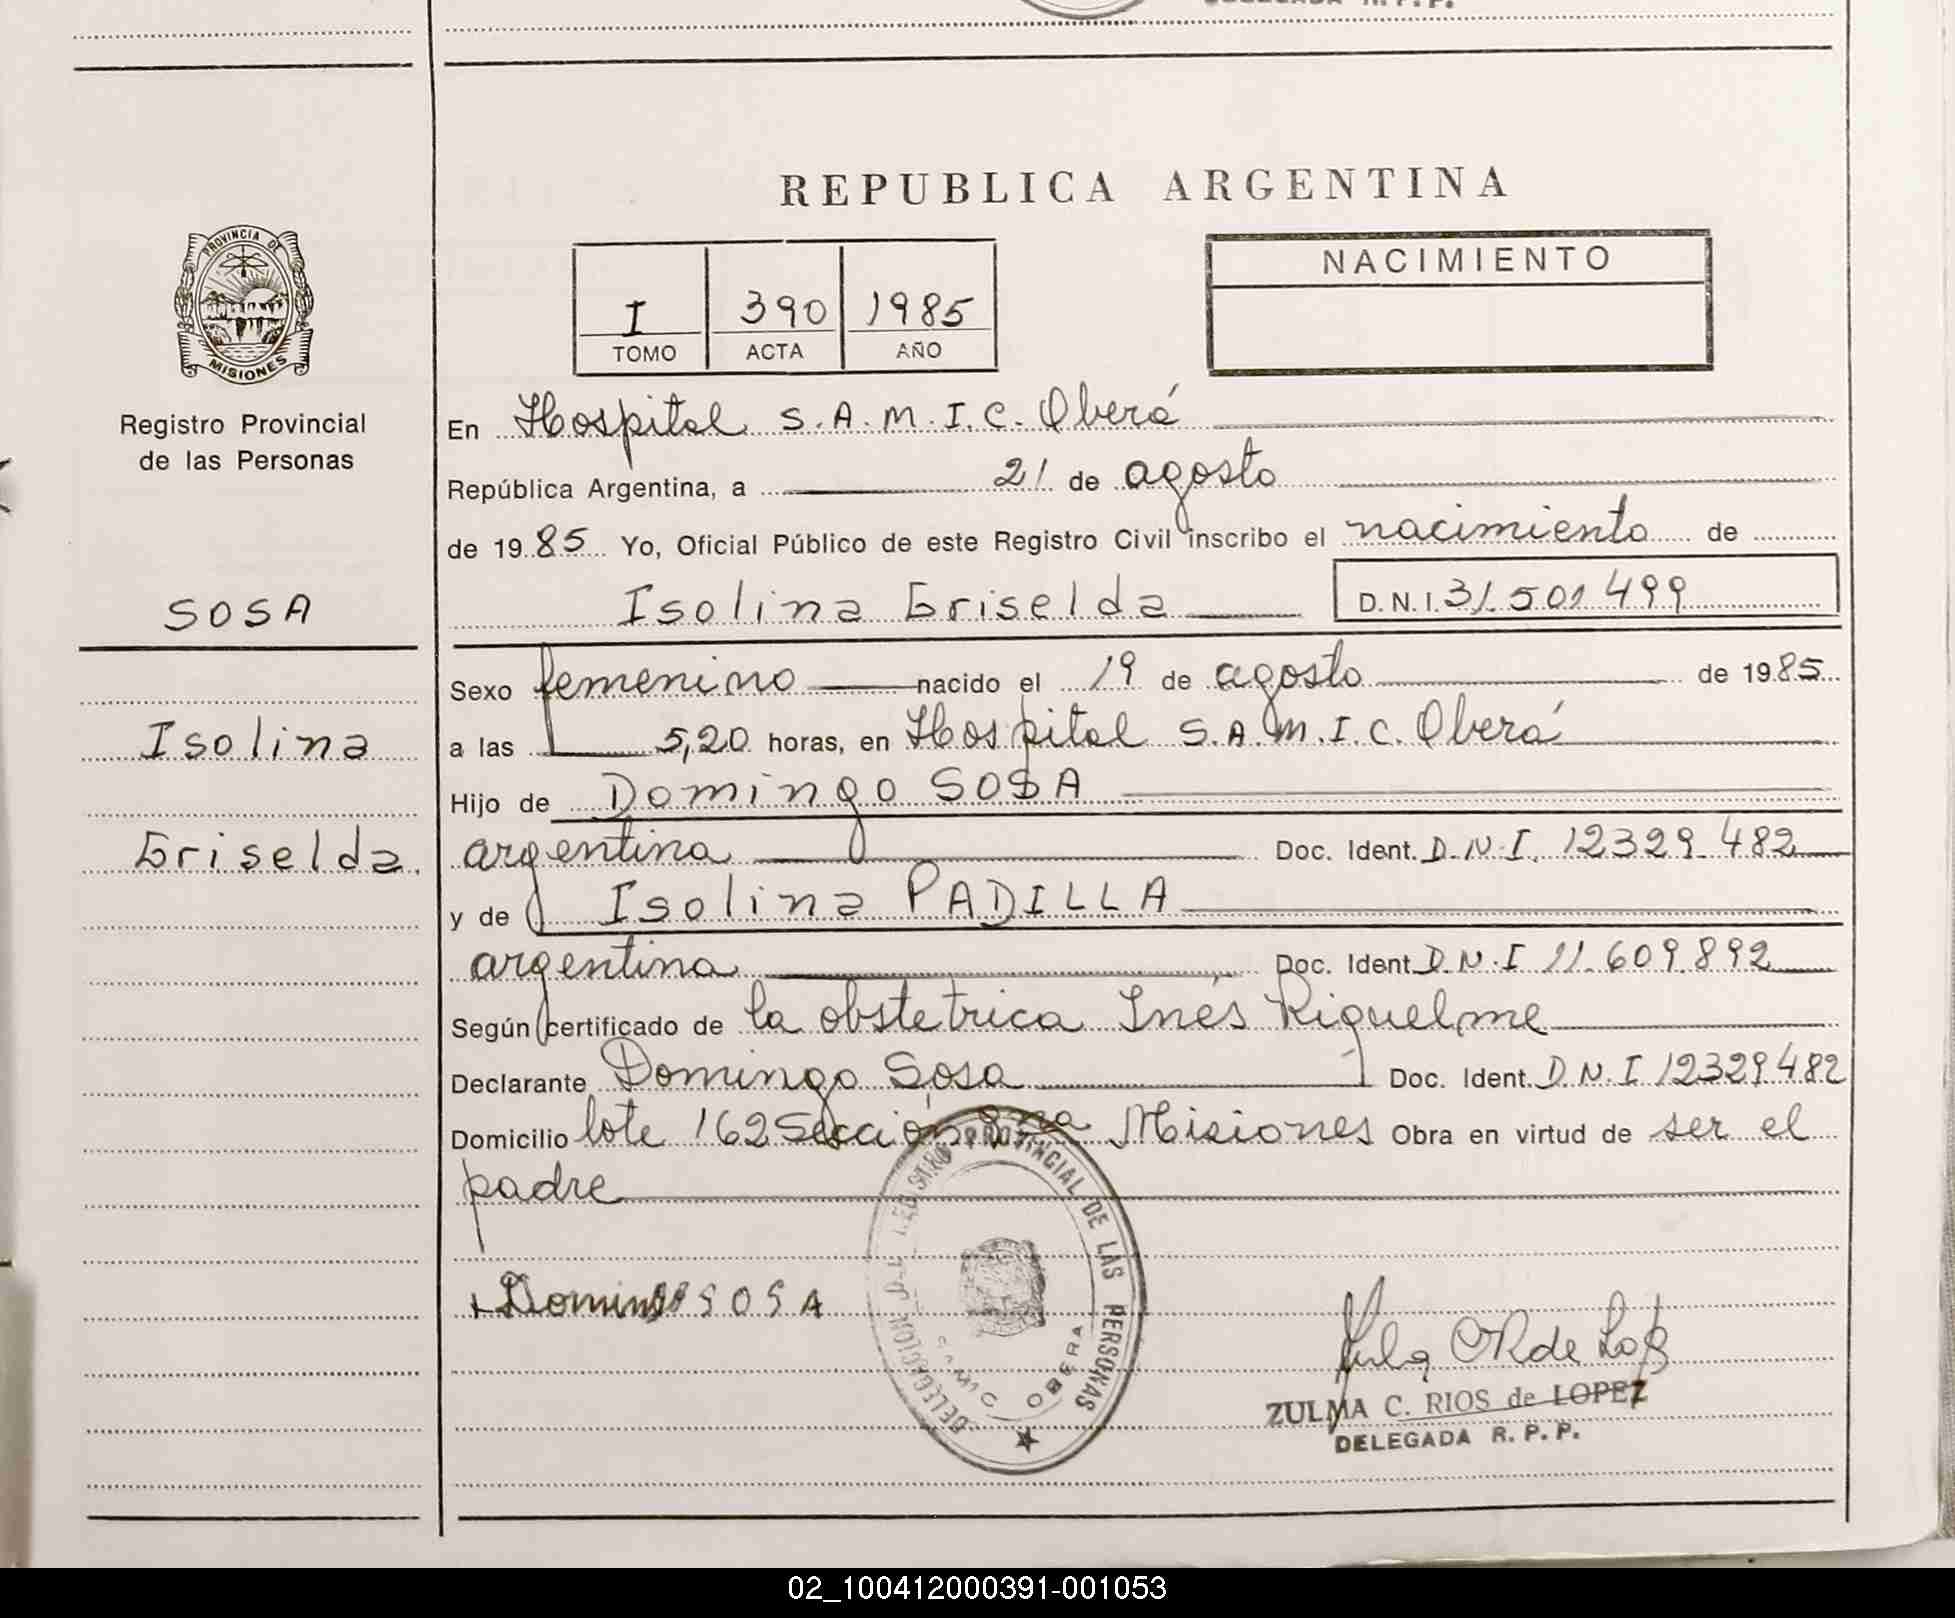 DELEGADA R.P.P.
REPUBLICA ARGENTINA
PROVINCIA DE
MISIONES
Registro Provincial
de las Personas
I 390 1985
TOMO ACTA AÑO
NACIMIENTO
En Hospital S.A.M.I.C. Oberá
República Argentina, a 21 de agosto
de 1985 Yo, Oficial Público de este Registro Civil inscribo el nacimiento de
Isolina Griselda D.N.I. 31.501499
SOSA
Isolina
Griselda.
Sexo femenino nacido el 19 de agosto de 1985
a las 5,20 horas, en Hospital S.A.M.I.C. Oberá
Hijo de Domingo SOSA
argentina Doc. Ident. D.N.I. 12329482
y de Isolina PADILLA
argentina Doc. Ident. D.N.I 11.609.892
Según certificado de la obstetrica Inés Riquelme
Declarante Domingo Sosa Doc. Ident. D.N.I 12329482
Domicilio lote 162 Sección Misiones Obra en virtud de ser el
padre
Domingo SOSA
DELEGACION DEL REGISTRO PROVINCIAL DE LAS PERSONAS
SAMIC OBERA
ZULMA C. RIOS de LOPEZ
DELEGADA R. P. P.
02_100412000391-001053